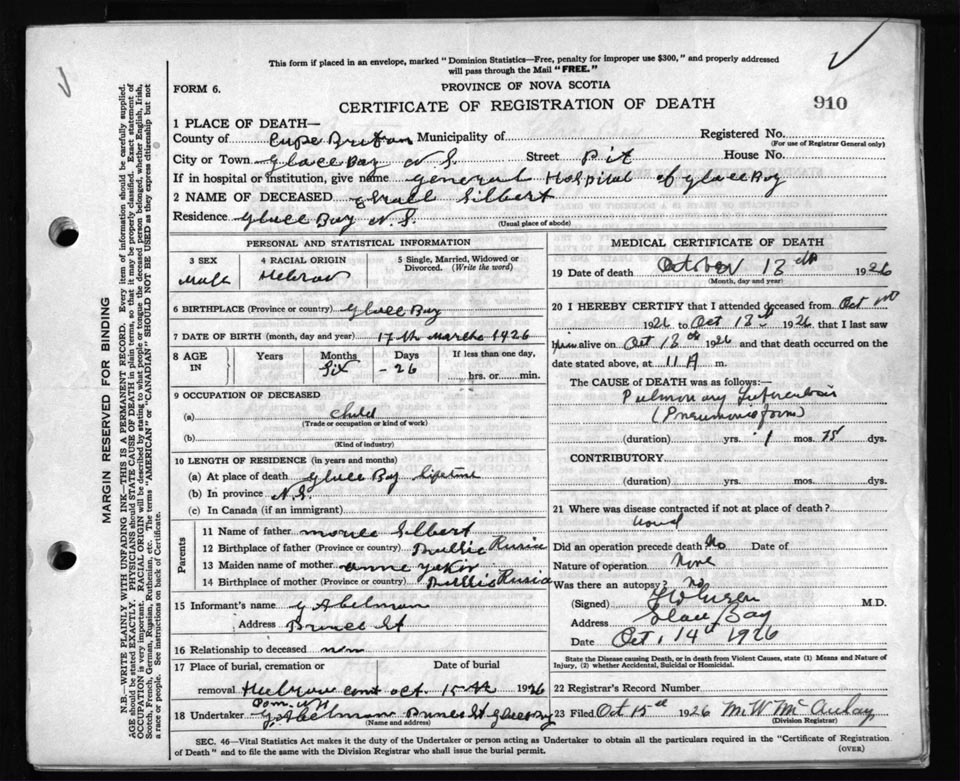 This form if placed in an envelope, marked "Dominion Statistics—Free, penalty for improper use $300," and properly addressed
will pass through the Mail "FREE."
FORM 6.
PROVINCE OF NOVA SCOTIA
CERTIFICATE OF REGISTRATION OF DEATH
910
1 PLACE OF DEATH—
County of Cape Breton Municipality of
Registered No.
(For use of Registrar General only)
City or Town Glace Bay N S. Street Pit House No.
If in hospital or institution, give name General Hospital of Glace Bay
2 NAME OF DECEASED Gilbert
Residence Glace Bay N. S.
(Usual place of abode)
PERSONAL AND STATISTICAL INFORMATION
3 SEX
Male
4 RACIAL ORIGIN
Hebrew
5 Single, Married, Widowed or
Divorced. (Write the word)
6 BIRTHPLACE (Province or country) Glace Bay
7 DATE OF BIRTH (month, day and year) 17th March 1926
8 AGE
IN
Years
Months
Six
Days
- 26
If less than one day,
hrs. or min.
9 OCCUPATION OF DECEASED
(a) child
(Trade or occupation or kind of work)
(b)
(Kind of industry)
10 LENGTH OF RESIDENCE (in years and months)
(a) At place of death Glace Bay lifetime
(b) In province N.S.
(c) In Canada (if an immigrant)
Parents
11 Name of father Gilbert
12 Birthplace of father (Province or country) Russia
13 Maiden name of mother Anne
14 Birthplace of mother (Province or country) Russia
15 Informant's name G Abelman
Address Prince St
16 Relationship to deceased non
17 Place of burial, cremation or
Date of burial
removal Hebrew Oct. 15th 1926
18 Undertaker G. Abelman Prince St Glace Bay
(Name and address)
MEDICAL CERTIFICATE OF DEATH
19 Date of death October 13th 1926
(Month, day and year)
20 I HEREBY CERTIFY that I attended deceased from Oct
1926 to Oct 13th 1926 that I last saw
him alive on Oct 13th 1926 and that death occurred on the
date stated above, at 11 A m.
The CAUSE OF DEATH was as follows:—
Pulmonary Tuberculosis
(Pneumonic form)
(duration) yrs. 1 mos. 15 dys.
CONTRIBUTORY
(duration) yrs. mos. dys.
21 Where was disease contracted if not at place of death?
Did an operation precede death No Date of
Nature of operation None
Was there an autopsy? no
(Signed) M.D.
Address Glace Bay
Date Oct. 14th 1926
State the Disease causing Death, or in death from Violent Causes, state (1) Means and Nature of
Injury, (2) whether Accidental, Suicidal or Homicidal.
22 Registrar's Record Number
23 Filed Oct 15th 1926 M W McAulay
(Division Registrar)
SEC. 46—Vital Statistics Act makes it the duty of the Undertaker or person acting as Undertaker to obtain all the particulars required in the "Certificate of Registration
of Death" and to file the same with the Division Registrar who shall issue the burial permit.
(OVER)
MARGIN RESERVED FOR BINDING
N.B.—WRITE PLAINLY WITH UNFADING INK—THIS IS A PERMANENT RECORD. Every item of information should be carefully supplied.
AGE should be stated EXACTLY. PHYSICIANS should STATE CAUSE OF DEATH in plain terms, so that it may be properly classified. Exact statement of
OCCUPATION is very important. RACIAL ORIGIN will be described by stating to what people or tongue the deceased person belonged, whether English, Irish,
Scotch, French, German, Russian, Ruthenian, etc. The terms "AMERICAN" or "CANADIAN" SHOULD NOT BE USED as they express citizenship but not
a race or people. See instructions on back of Certificate.